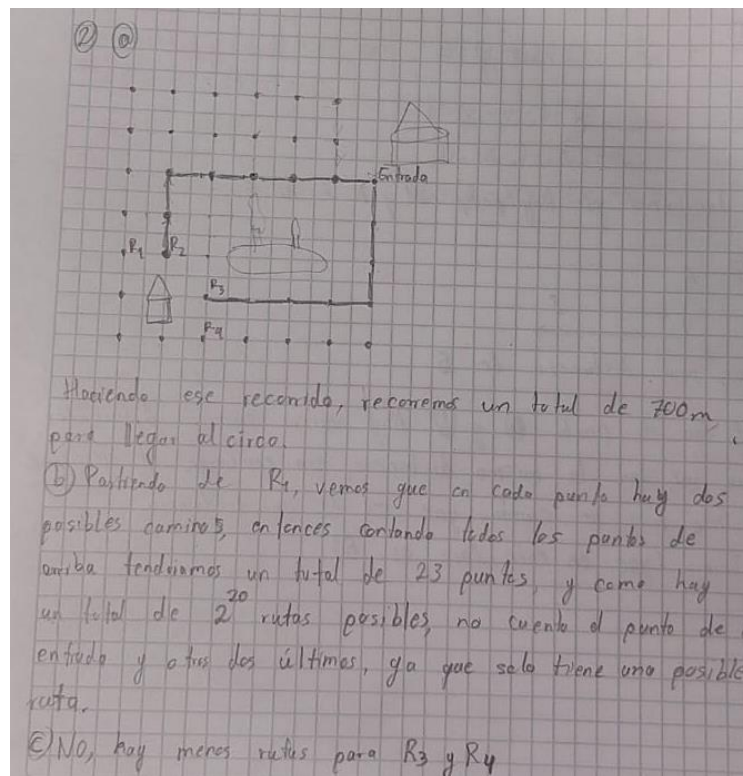 2 a
Entrada
R1 R2
R3
R4
Haciendo ese recorrido, recorremos un total de 700m
para llegar al circo.
b) Partiendo de R1, vemos que en cada punto hay dos
posibles caminos, entonces contando todos los puntos de
arriba tendriamos un total de 23 puntos, y como hay
un total de 2^20 rutas posibles, no cuento el punto de
entrada y otros dos últimos, ya que solo tiene una posible
ruta.
c) No, hay menos rutas para R3 y R4